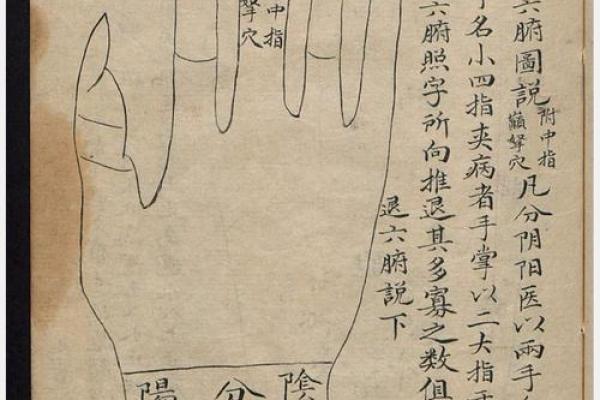 六腑圖說
附中指
穴
凡分阴阳医以兩手
名小四指夾病者手掌以二大指
六腑照字所向推退其多寡之数俱
退六腑說下
中指
穴
陰分陽